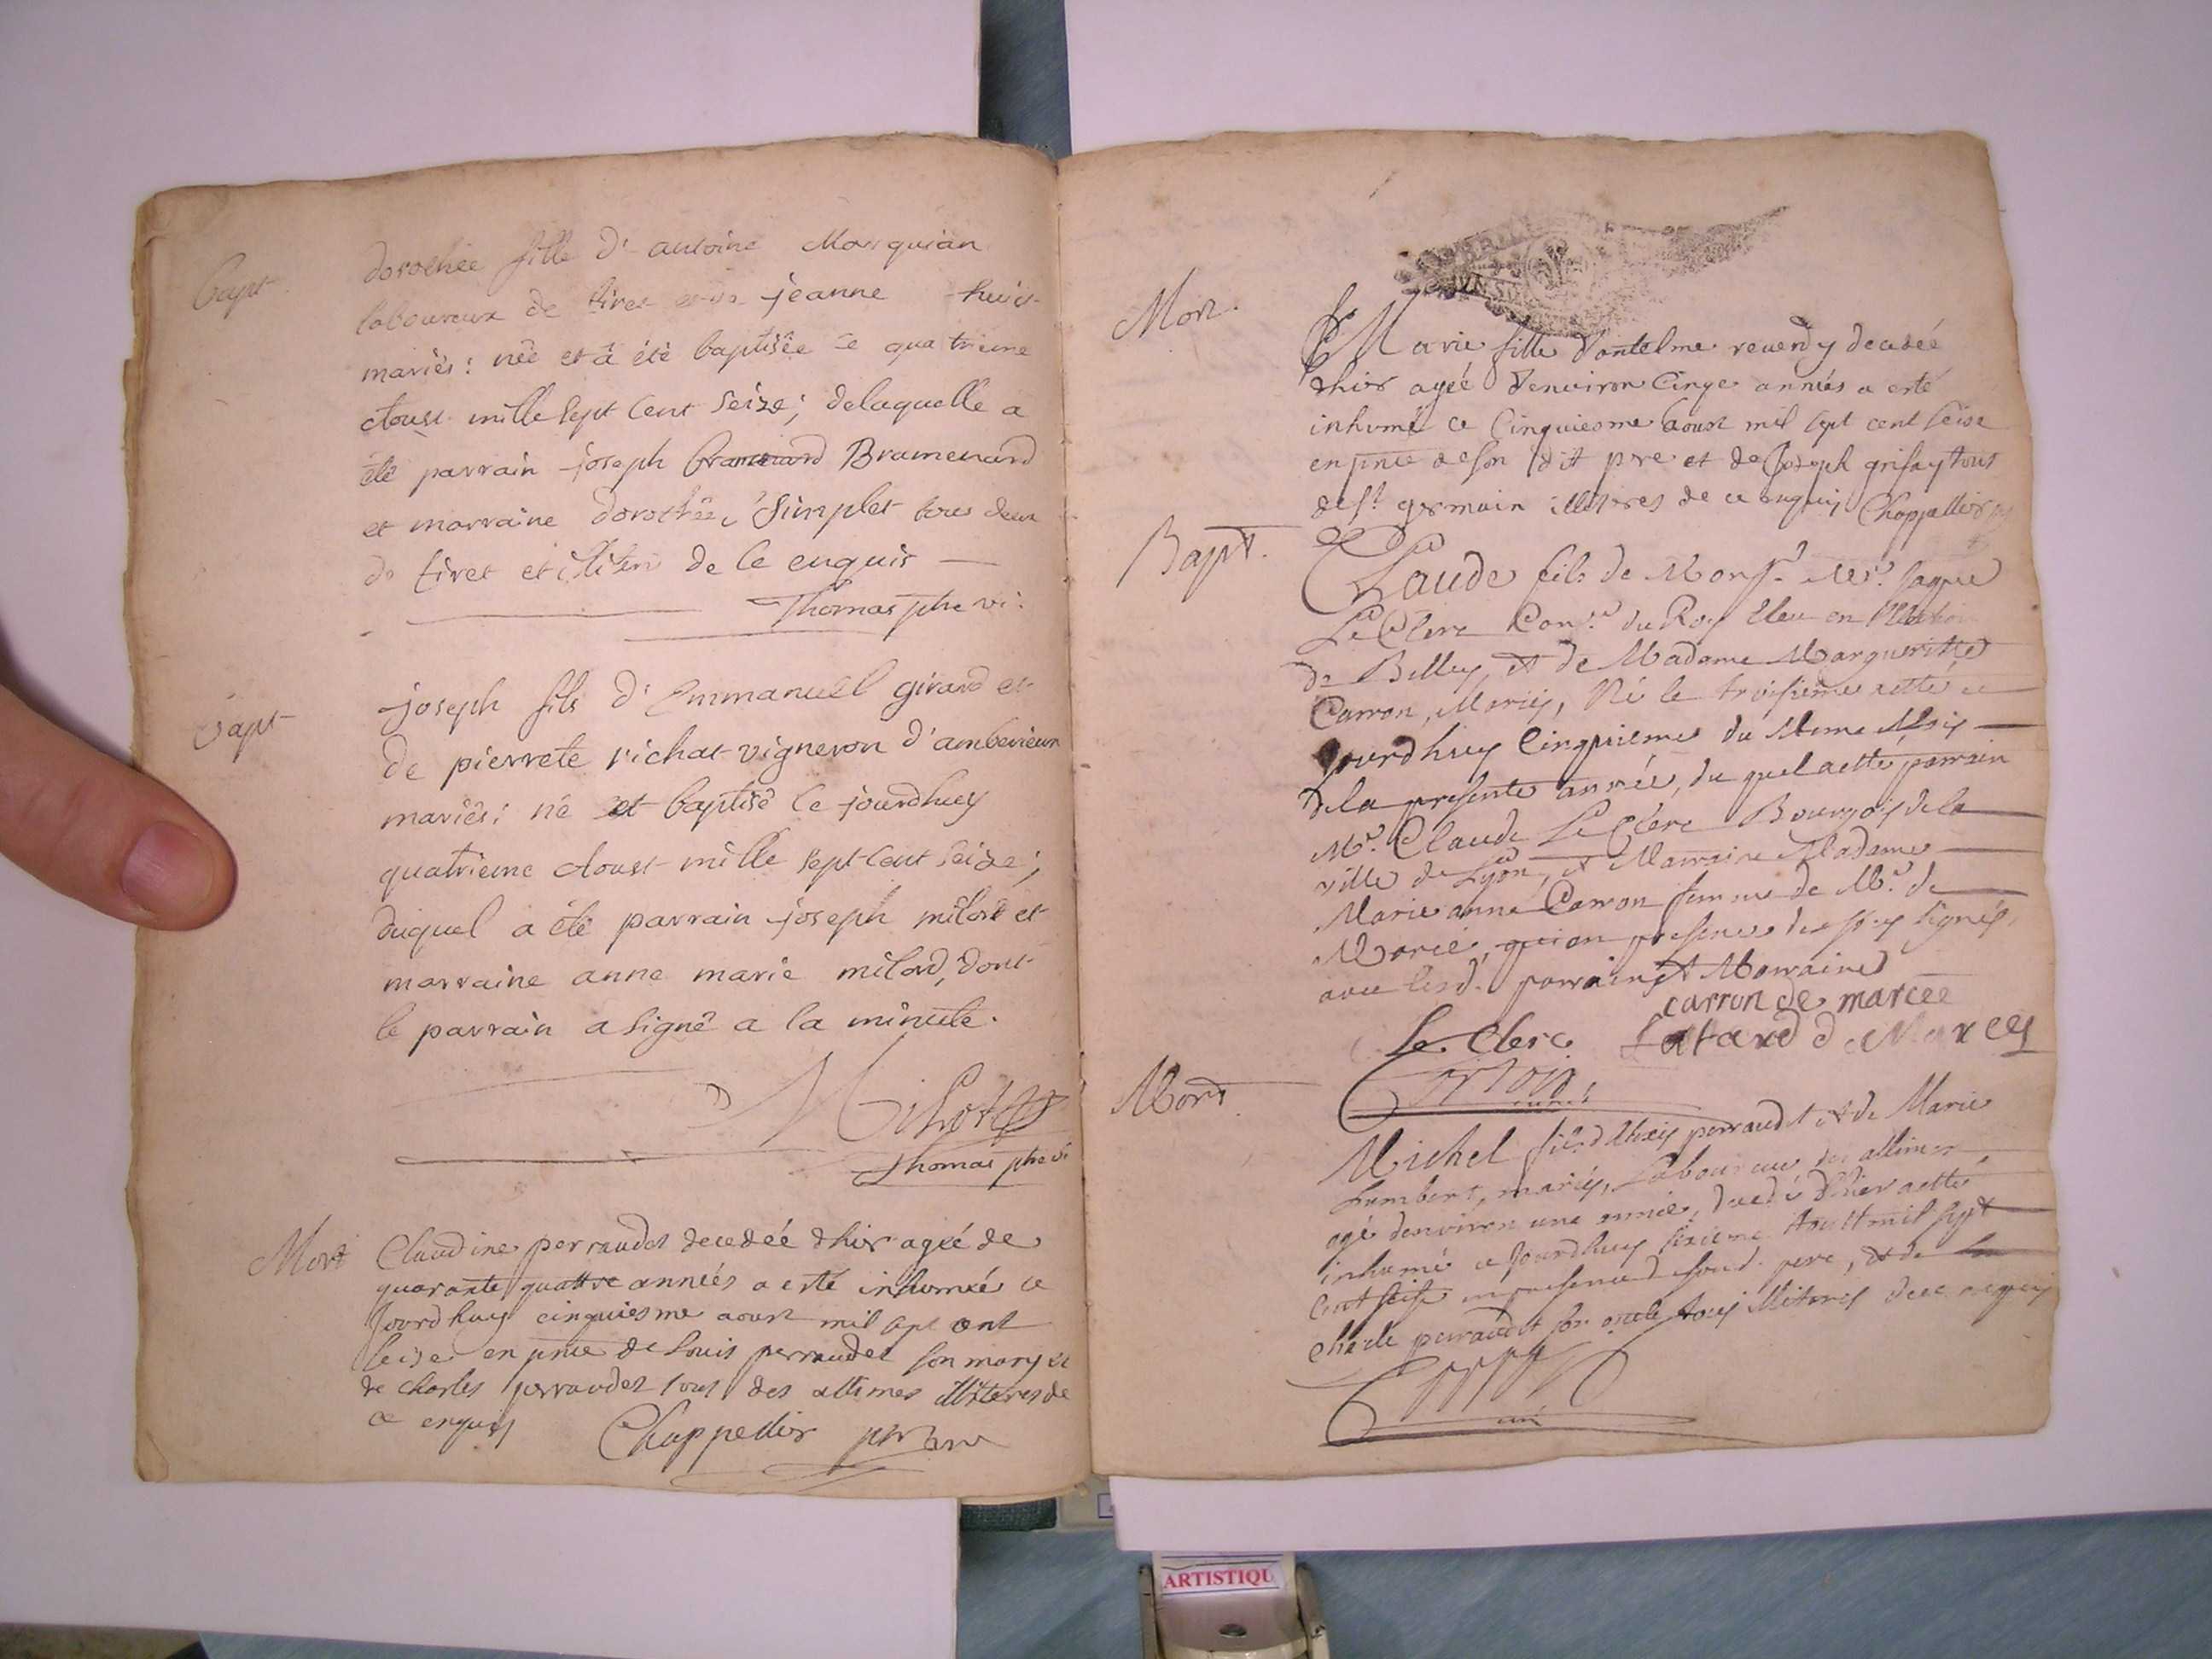 Bapt
dorothée fille d'antoine Marquian
laboureur de tiret et de jeanne huict
mariés: née et a été baptisée le quatrieme
doust mille sept cent seize; delaquelle a
été parrain joseph Bramenard
et marraine dorothée Simplet tous deux
de tiret et illiteres de ce enquis
Thomas pbre vi:
Bapt
joseph fils d'Emmanuel girard et
de pierrete richat vigneron d'amberieux
mariés: né et baptisé ce jourdhuy
quatrieme doust mille sept cent seize;
duquel a été parrain joseph milord et
marraine anne marie milord, dont
le parrain a signé a la minute.
Thomas pbre vi
Mort
Claudine perraudet decedée dhier agée de
quarante quattre années a esté inhumée ce
Jourdhuy cinquiesme aoust mil sept cent
seise en pnce de louis perraudet son mary et
de charles perraudet tous des allimes illiteres de
ce enquis Chappellier
Mort.
Marie fille d'antelme reverdy decedée
dhier agée denviron Cinqe années a esté
inhumé ce Cinquiesme aoust mil sept cent seise
en pnce de son dit pere et de Joseph grisay tous
de st. germain illiteres de ce enquis Chappellier
Bapt.
Claude fils de Monsr. Mer. Jaque
Le Clerc Consr. du Roy Eleu en l'Election
de Belley, et de Madame Margueritte
Carron, Mariés, Né le troisieme a etté ce
Jourdhuy Cinquieme du Meme Mois
de la presente année, du quel a etté parrain
Mr. Claude Le Clerc Bourgois de la
ville de Lyon, et Marraine Madame
Marie anne Carron femme de Mr. de
Marcé, qui en presence des soussignés
avec lesd. parrain et Marraine
carron de marcee
Le Clerc Latard de Marcey
curé
Mort.
Michel fils d'Alexis perraudet et de Marie
Lumbert, mariés, Laboureur des allimes
agé denviron une année, decedé d'hier a etté
inhumé ce Jourdhuy sixieme Aoust mil sept
Cent seise en presence de sond. pere, et de
Charle perraudet son oncle tous illiteres de ce enquis
curé
ARTISTIQU